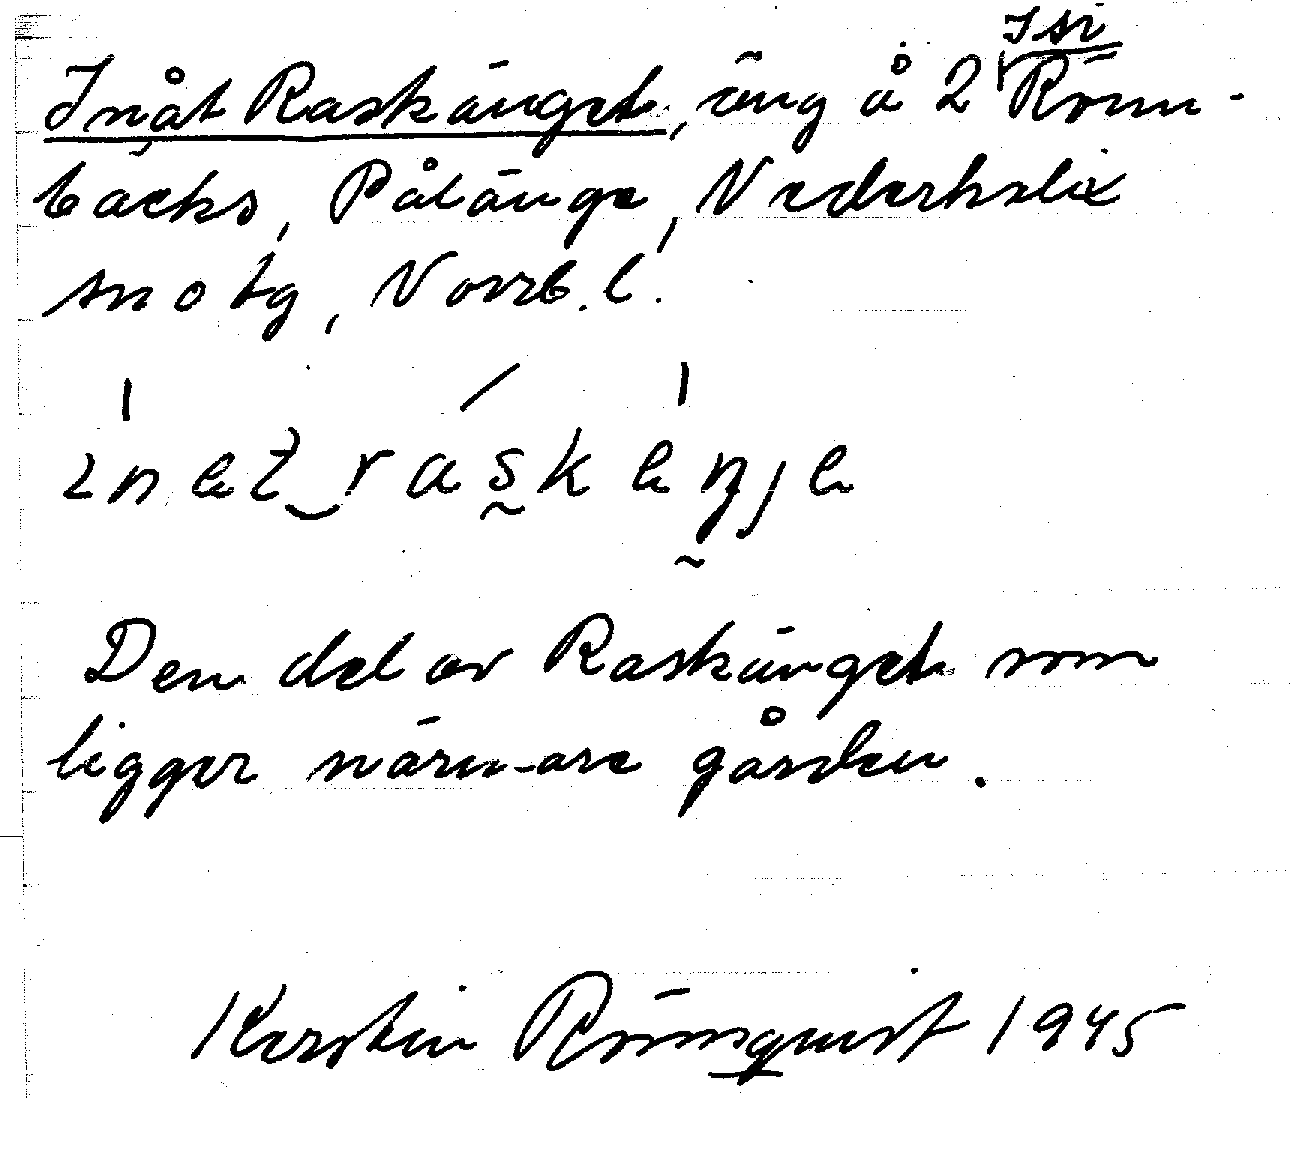 Isi
Inåt Raskänget, äng å 2 Rönn-
bäcks, Pålänge, Nederkalix
sn o tg, Norrb. l.
inat raskänje
Den del av Raskänget som
ligger närmare gården.
Kerstin Rönnquist 1945